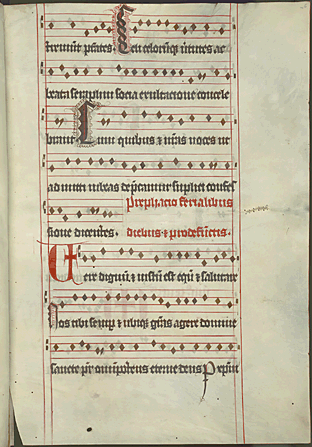 tremunt ptātes. Celi celorūqʒ v̄tutes ac
beata seraphin socia exultacione concele
brant. Cum quibus & nr̄as voces ut
admitti iubeas dep̄camur supplici confes
Prephacio ferialibus
sione dicentes. diebus & pro defunctis.
Vere dignū & iustū est equū & salutare
Nos tibi semp̄ & ubiqʒ gr̄as agere domine
sancte pr̄ omīpotens eterne deus